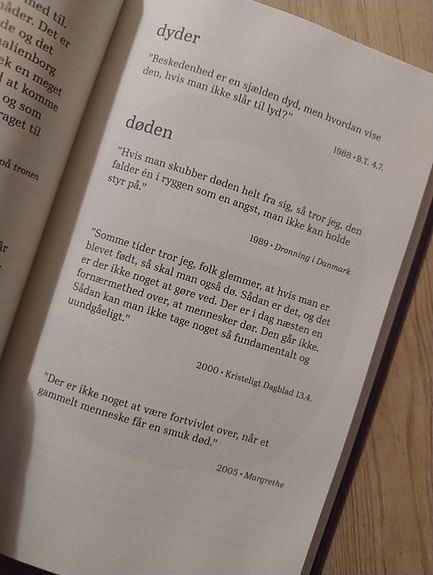 med til.
måder. Det er
de og det
alienborg
æk en meget
d at komme
og som
raget til
på tronen
år
dyder
"Beskedenhed er en sjælden dyd, men hvordan vise
den, hvis man ikke slår til lyd?"
1988 • B.T. 4.7.
døden
"Hvis man skubber døden helt fra sig, så tror jeg, den
falder én i ryggen som en angst, man ikke kan holde
styr på."
1989 • Dronning i Danmark
"Somme tider tror jeg, folk glemmer, at hvis man er
blevet født, så skal man også dø. Sådan er det, og det
er der ikke noget at gøre ved. Der er i dag næsten en
fornærmethed over, at mennesker dør. Den går ikke.
Sådan kan man ikke tage noget så fundamentalt og
uundgåeligt."
2000 • Kristeligt Dagblad 13.4.
"Der er ikke noget at være fortvivlet over, når et
gammelt menneske får en smuk død."
2005 • Margrethe